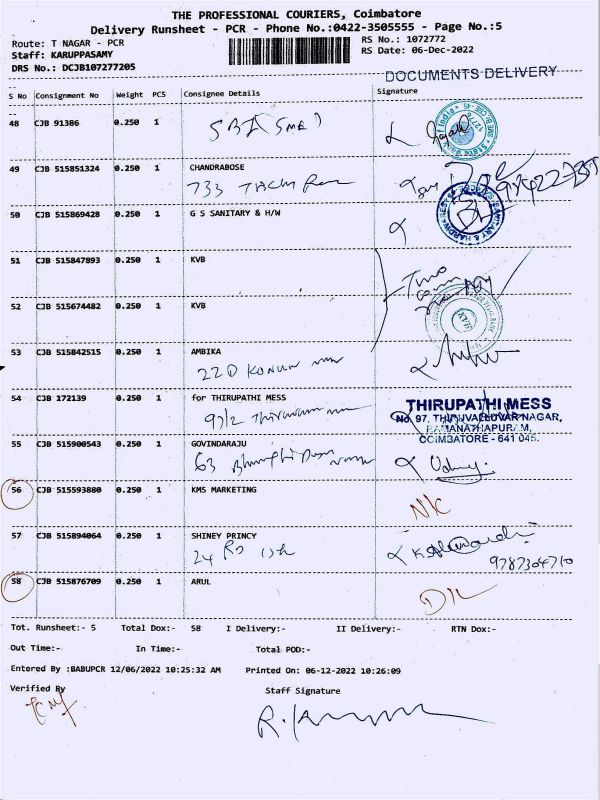 THE PROFESSIONAL COURIERS, Coimbatore
Delivery Runsheet - PCR - Phone No.:0422-3505555 - Page No.:5
Route: T NAGAR - PCR
RS No.: 1072772
Staff: KARUPPASAMY
RS Date: 06-Dec-2022
DRS No.: DCJB107277205
DOCUMENTS DELIVERY
S No Consignment No Weight PCS Consignee Details Signature
48 CJB 91386 0.250 1
SBI SME
49 CJB 515851324 0.250 1 CHANDRBOSE
733
50 CJB 515869428 0.250 1 G S SANITARY & H/W
51 CJB 515847893 0.250 1 KVB
Two
52 CJB 515674482 0.250 1 KVB
53 CJB 515842515 0.250 1 AMBIKA
22D
54 CJB 172139 0.250 1 for THIRUPATHI MESS
97/2
THIRUPATHI MESS
No. 97, THIRUVALLUVAR NAGAR,
RAMANATHAPURAM,
COIMBATORE - 641 045.
55 CJB 515900543 0.250 1 GOVINDARAJU
63
56 CJB 515593880 0.250 1 KMS MARKETING
N/C
57 CJB 515894064 0.250 1 SHINEY PRINCY
24
9787304710
58 CJB 515876709 0.250 1 ARUL
D/L
Tot. Runsheet:- 5 Total Dox:- 58 I Delivery:- II Delivery:- RTN Dox:-
Out Time:- In Time:- Total POD:-
Entered By :BABUPCR 12/06/2022 10:25:32 AM Printed On: 06-12-2022 10:26:09
Verified By Staff Signature